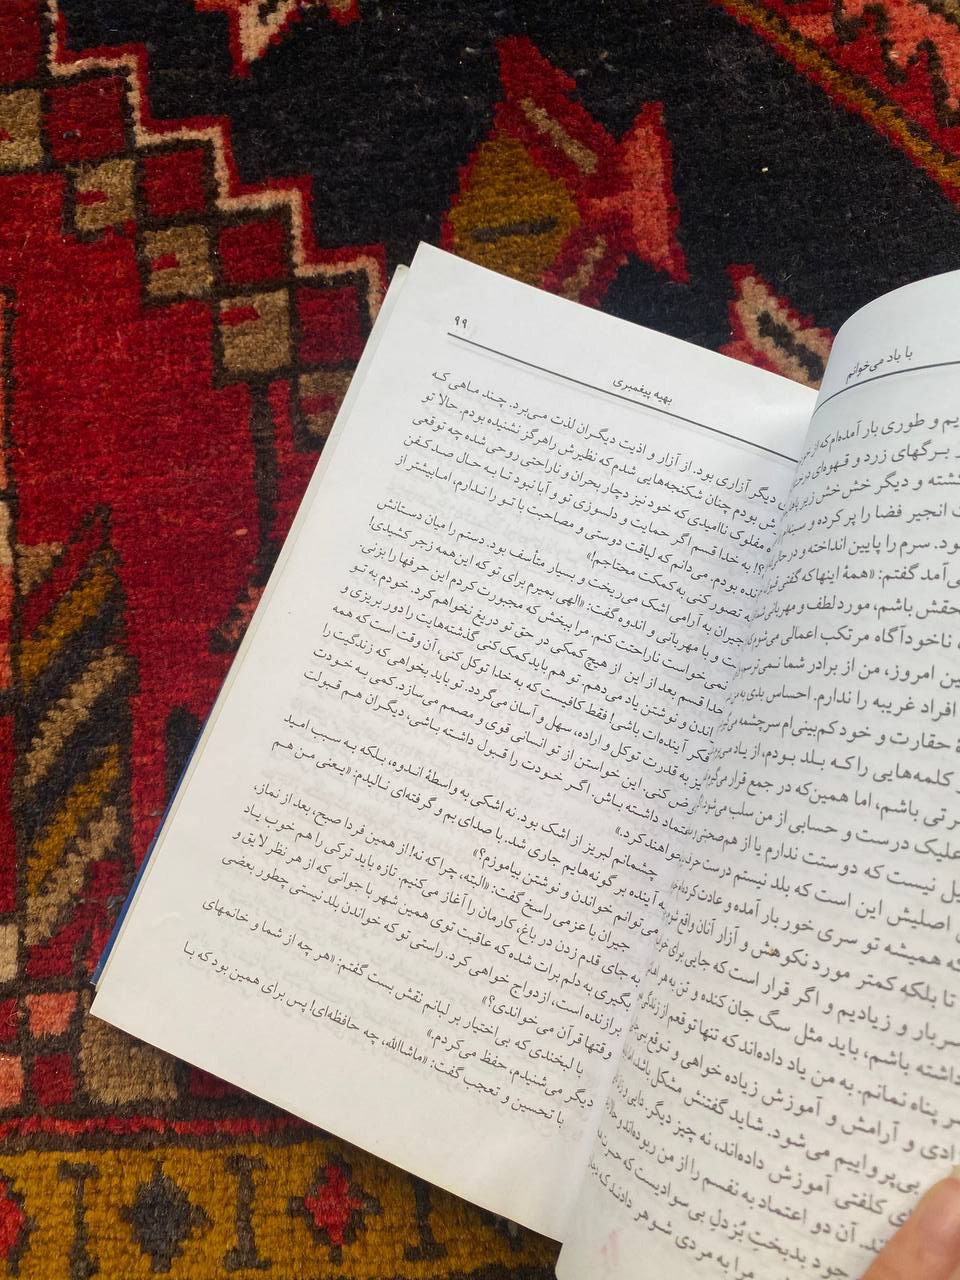 با باد می‌خوانم
یم و طوری بار آمده‌ام که از
برگهای زرد و قهوه‌ای
شته و دیگر خش خش زیر
انجیر فضا را پر کرده و
ود. سرم را پایین انداخته و در
ی‌آمد گفتم: «همهٔ اینها که گفتی
حقش باشم، مورد لطف و مهربانی
ناخودآگاه مرتکب اعمالی می‌شوم
ین امروز، من از برادر شما نمی‌ترسم
افراد غریبه را ندارم. احساس بدی به
حقارت و خود کم‌بینی‌ام سرچشمه
کلمه‌هایی را که بلد بودم، از یاد
رتی باشم، اما همین‌که در جمع قرار
علیک درست و حسابی از من سلب می‌شود
یل نیست که دوستت ندارم یا از هم صحبتی
اصلیش این است که بلد نیستم درست
که همیشه تو سری خور بار آمده و عادت کرده‌ام
تا بلکه کمتر مورد نکوهش و آزار آنان واقع شوم
سربار و زیادیم و اگر قرار است که جایی برای
داشته باشم، باید مثل سگ جان کنده و تن به هر
ر پناه نمانم. به من یاد داده‌اند که تنها توقعم از زندگی
ادی و آرامش و آموزش زیاده خواهی و توقع
بی‌پرواییم می‌شود. شاید گفتنش مشکل باشد
ی کلفتی آموزش داده‌اند، نه چیز دیگر. دایی و
ند. آن دو اعتماد به نفسم را از من ربوده‌اند و
خود بدبختِ بُزدلِ بی سوادیست که
مرا به مردی شوهر دادند که
۹۹
بهیه پیغمبری
دیگر آزاری بود. از آزار و اذیت دیگران لذت می‌برد. چند ماهی که
ش بودم چنان شکنجه‌هایی شدم که نظیرش را هرگز نشنیده بودم. حالا تو
مفلوک ناامیدی که خود نیز دچار بحران و ناراحتی روحی شده چه توقعی
؟! به خدا قسم اگر حمایت و دلسوزی تو و آبا نبود تا به حال صد کفن
نده بودم. می‌دانم که لیاقت دوستی و مصاحبت با تو را ندارم، اما بیشتر از
تصور کنی به کمکت محتاجم!»
جیران به آرامی اشک می‌ریخت و بسیار متأسف بود. دستم را میان دستانش
ت و با مهربانی و اندوه گفت: «الهی بمیرم برای تو که این همه زجر کشیدی!
نمی‌خواست ناراحتت کنم. مرا ببخش که مجبورت کردم این حرفها را بزنی.
خدا قسم بعد از این از هیچ کمکی در حق تو دریغ نخواهم کرد. خودم به تو
اندن و نوشتن یاد می‌دهم. تو هم باید کمک کنی گذشته‌هایت را دور بریزی و
فکر آینده‌ات باشی! فقط کافیست که به خدا توکل کنی، آن وقت است که همه
یز به قدرت توکل و اراده، سهل و آسان می‌گردد. تو باید بخواهی که زندگیت را
وض کنی. این خواستن از تو انسانی قوی و مصمم می‌سازد. کمی به خودت
عتماد داشته باش. اگر خودت را قبول داشته باشی، دیگران هم قبولت
خواهند کرد.»
چشمانم لبریز از اشک بود. نه اشکی به واسطهٔ اندوه، بلکه به سبب امید
به آینده بر گونه‌هایم جاری شد. با صدای بم و گرفته‌ای نالیدم: «یعنی من هم
می‌توانم خواندن و نوشتن بیاموزم؟»
جیران با عزمی راسخ گفت: «البته، چرا که نه! از همین فردا صبح، بعد از نماز،
به جای قدم زدن در باغ، کارمان را آغاز می‌کنیم. تازه باید ترکی را هم خوب یاد
بگیری به دلم برات شده که عاقبت توی همین شهر با جوانی که از هر نظر لایق و
برازنده است، ازدواج خواهی کرد. راستی تو که خواندن بلد نیستی چطور بعضی
وقتها قرآن می‌خواندی؟»
با لبخندی که بی‌اختیار بر لبانم نقش بست گفتم: «هر چه از شما و خانمهای
دیگر می‌شنیدم، حفظ می‌کردم.»
با تحسین و تعجب گفت: «ماشاالله، چه حافظه‌ای! پس برای همین بود که با